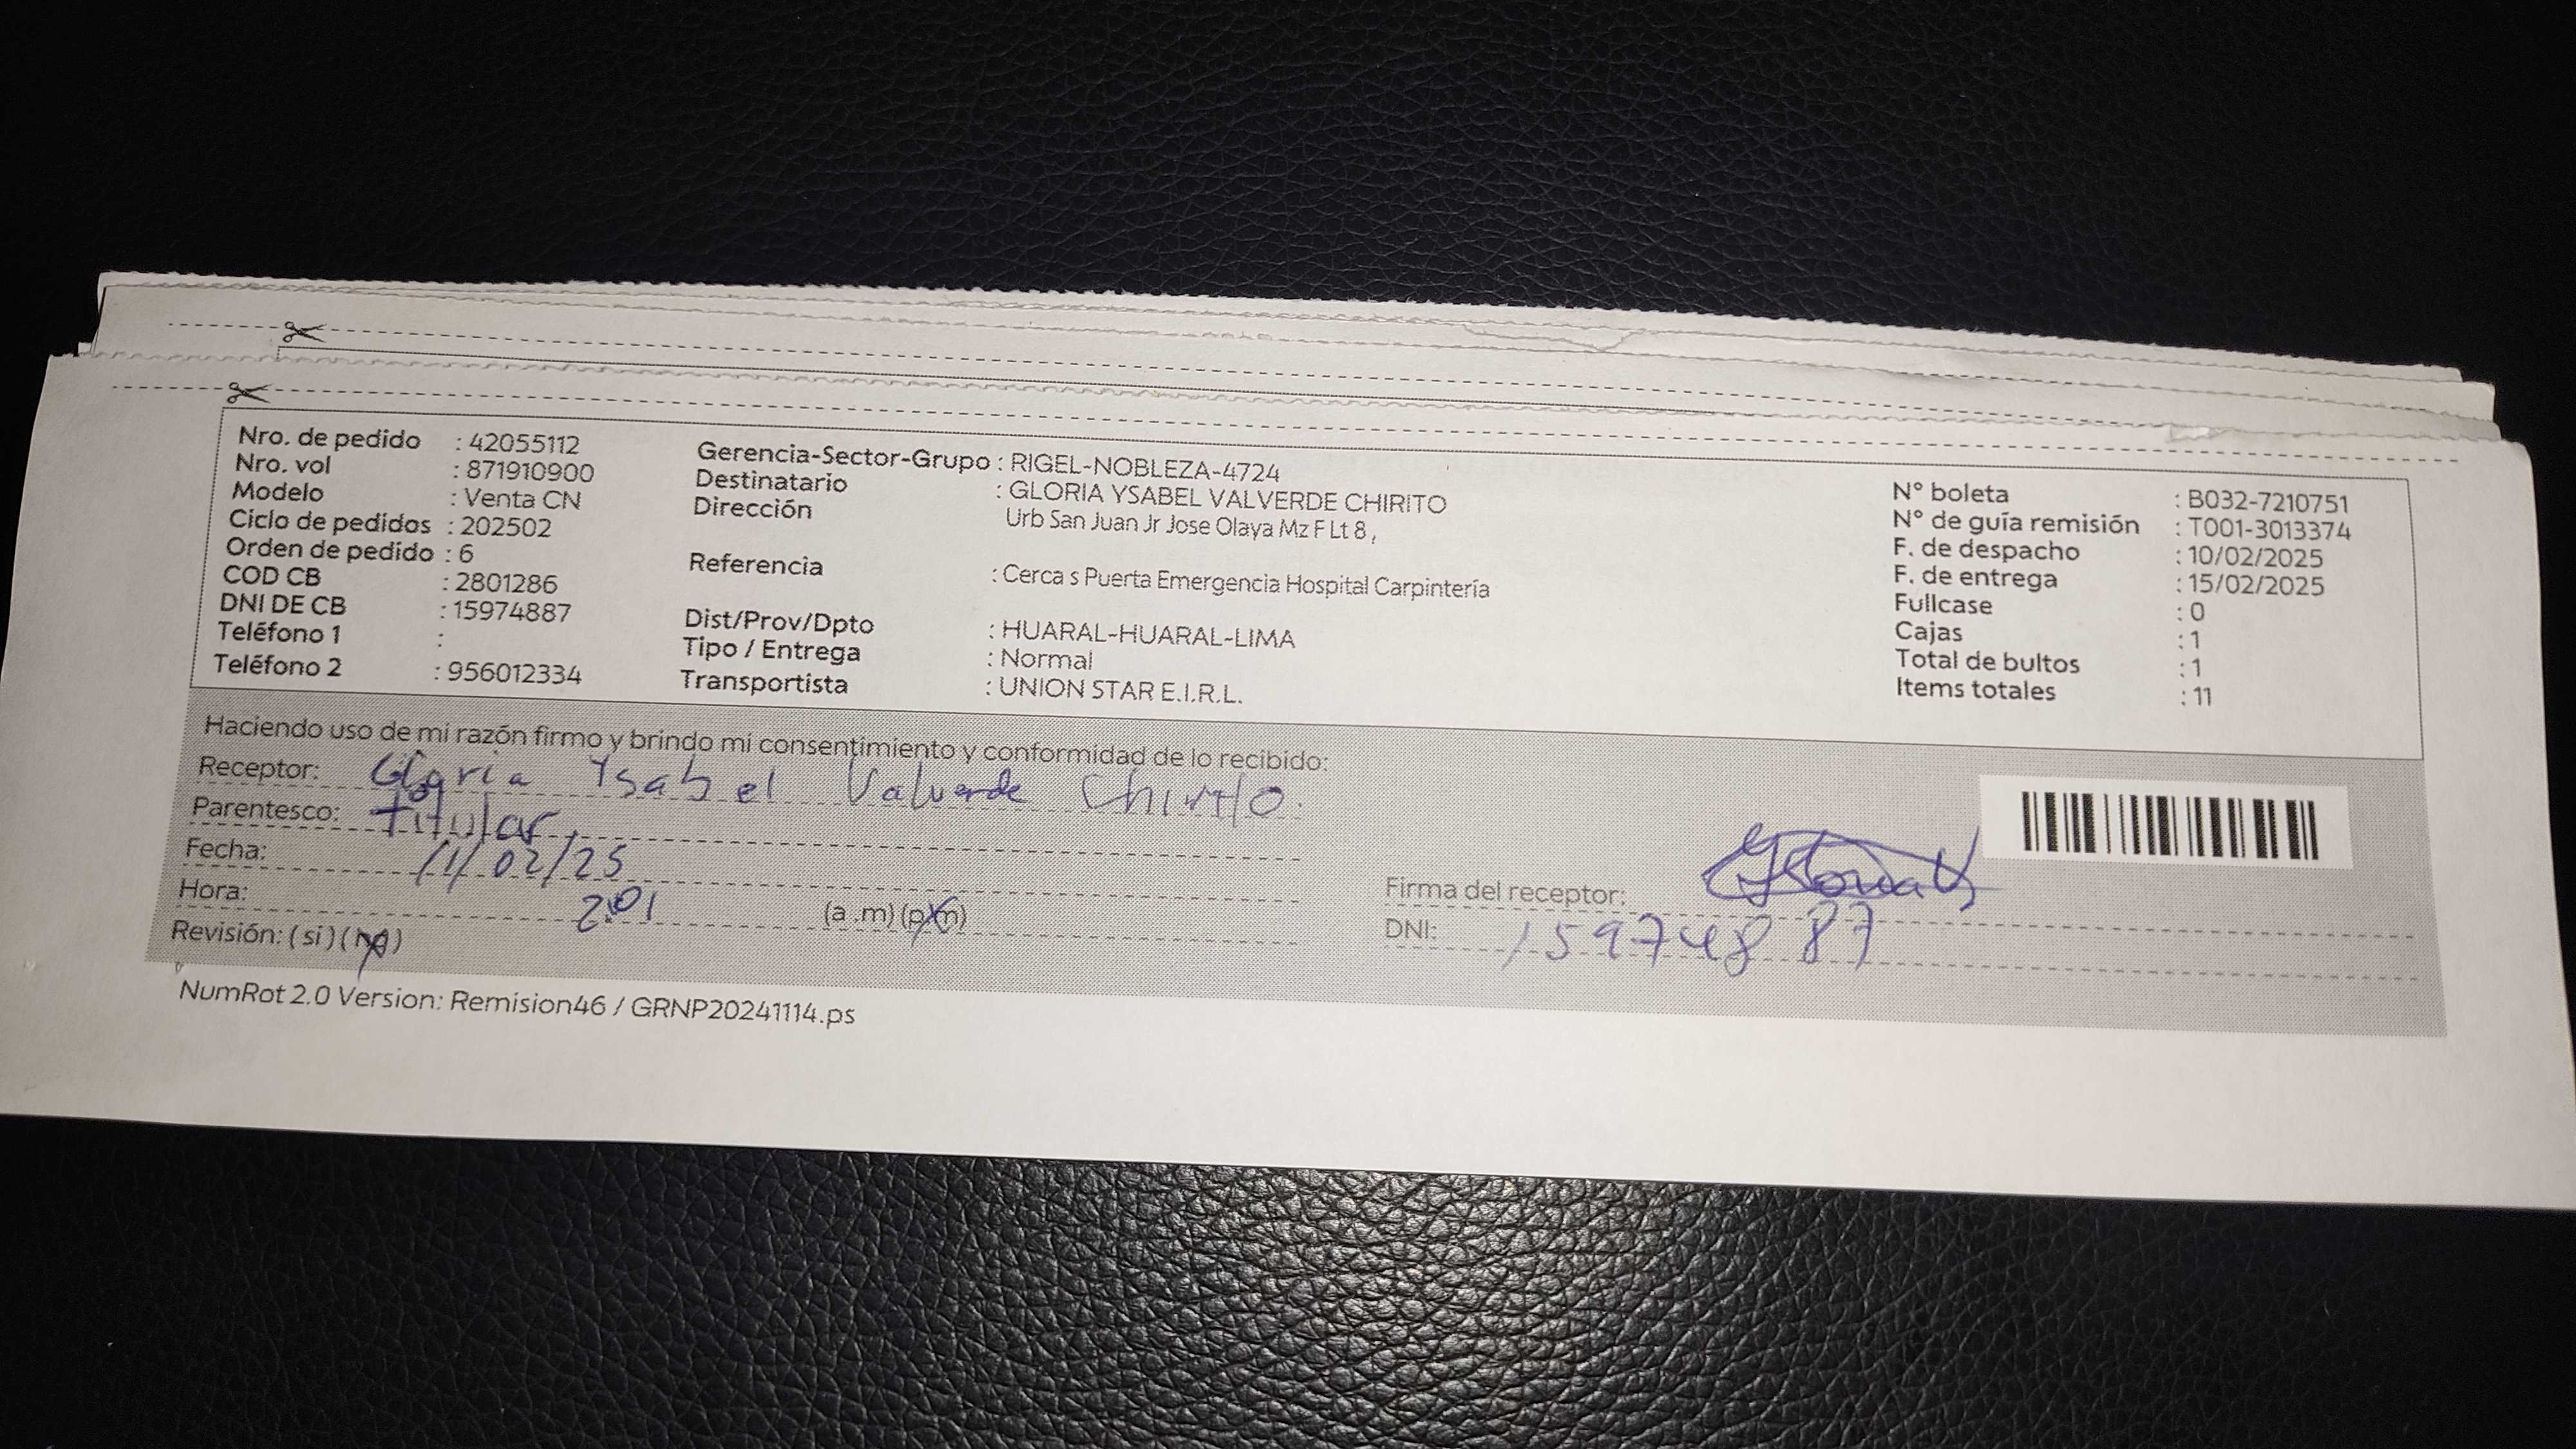 Nro. de pedido : 42055112
Nro. vol : 871910900
Modelo : Venta CN
Ciclo de pedidos : 202502
Orden de pedido : 6
COD CB : 2801286
DNI DE CB : 15974887
Teléfono 1 :
Teléfono 2 : 956012334
Gerencia-Sector-Grupo : RIGEL-NOBLEZA-4724
Destinatario : GLORIA YSABEL VALVERDE CHIRITO
Dirección Urb San Juan Jr Jose Olaya Mz F Lt 8 ,
Referencia : Cerca s Puerta Emergencia Hospital Carpintería
Dist/Prov/Dpto : HUARAL-HUARAL-LIMA
Tipo / Entrega : Normal
Transportista : UNION STAR E.I.R.L.
N° boleta : B032-7210751
N° de guía remisión : T001-3013374
F. de despacho : 10/02/2025
F. de entrega : 15/02/2025
Fullcase : 0
Cajas : 1
Total de bultos : 1
Items totales : 11
Haciendo uso de mi razón firmo y brindo mi consentimiento y conformidad de lo recibido:
Receptor: Gloria Ysabel Valverde Chirito.
Parentesco: Titular
Fecha: 11/02/25
Hora: 2:01 (a .m) (p.m)
Revisión: ( si ) ( no )
Firma del receptor: Gloria V
DNI: 15974887
NumRot 2.0 Version: Remision46 / GRNP20241114.ps